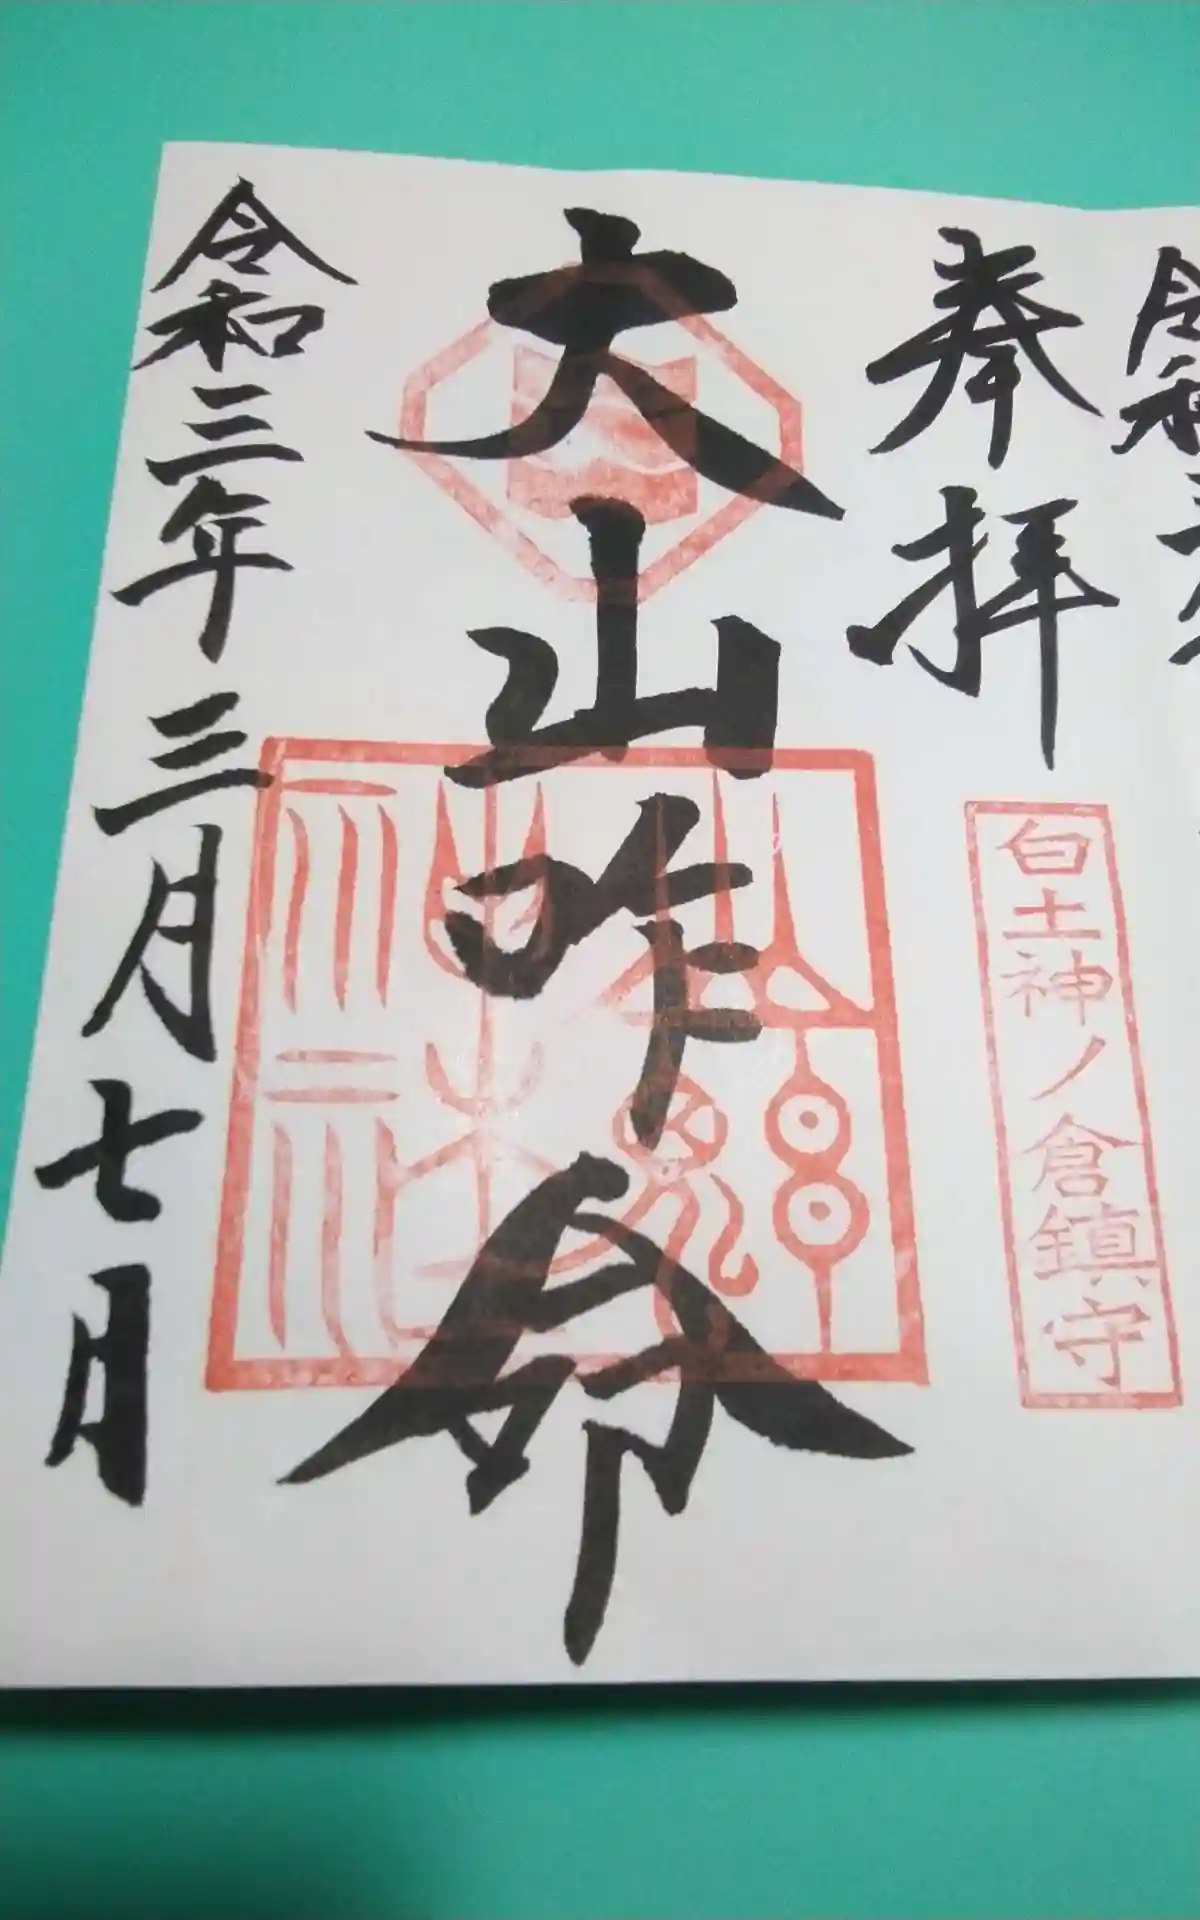 令和三
奉拝
白土神ノ倉鎮守
大山咋命
令和三年三月七日